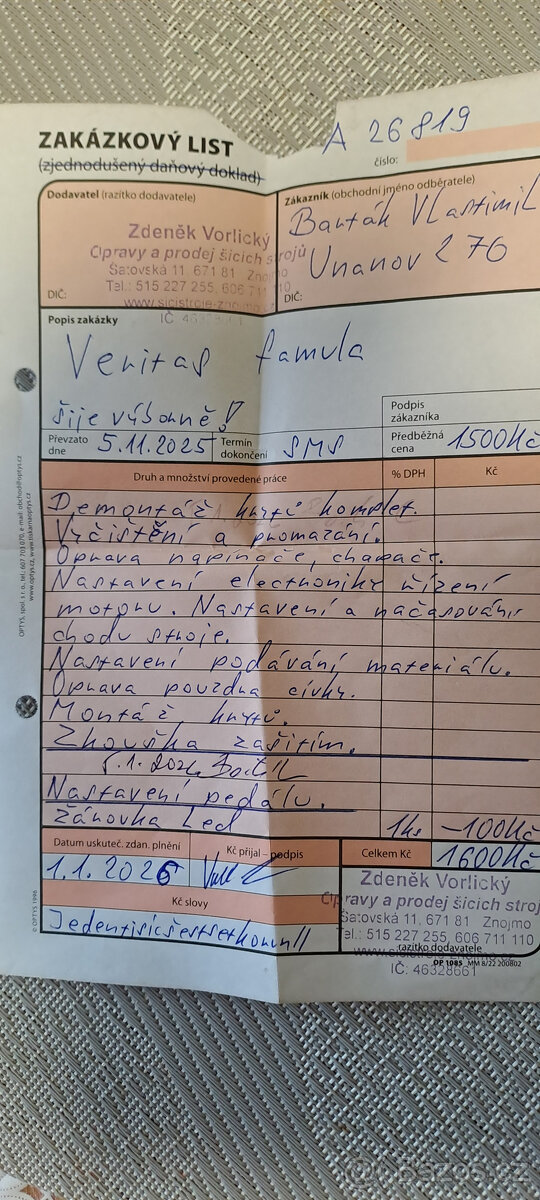 ZAKÁZKOVÝ LIST
(zjednodušený daňový doklad)
A 26819
číslo:
Dodavatel (razítko dodavatele)
Zdeněk Vorlický
Opravy a prodej šicích strojů
Šatovská 11, 671 81 Znojmo
Tel.: 515 227 255, 606 711 110
www.sicistroje-znojmo.cz
IČ: 46328661
DIČ:
Zákazník (obchodní jméno odběratele)
Barták Vlastimil
Únanov 276
DIČ:
Popis zakázky
Veritas famula
šije výborně!
Podpis zákazníka
Převzato dne 5.11.2025
Termín dokončení SMS
Předběžná cena 1500Kč
Druh a množství provedené práce
% DPH
Kč
Demontáž krytů komplet.
Vyčištění a promazání.
Oprava napínače, chapače.
Nastavení electroniky řízení
motoru. Nastavení a načasování
chodu stroje.
Nastavení podávání materiálu.
Oprava pouzdra cívky.
Montáž krytů.
Zkouška zašitím.
Nastavení pedálu.
žárovka Led 1ks -100Kč
Datum uskuteč. zdan. plnění
1.1.2026
Kč přijal – podpis
Celkem Kč
1600Kč
Kč slovy
Jedentisícšestsetkorun
Zdeněk Vorlický
Opravy a prodej šicích strojů
Šatovská 11, 671 81 Znojmo
Tel.: 515 227 255, 606 711 110
razítko dodavatele
www.sicistroje-znojmo.cz
IČ: 46328661
DP 1085 MM 8/22 200802
© OPTYS 1996
OPTYS, spol. s r. o., tel.: 607 703 070, e-mail: obchod@optys.cz
www.optys.cz, www.tiskarnaoptys.cz
bazos.cz